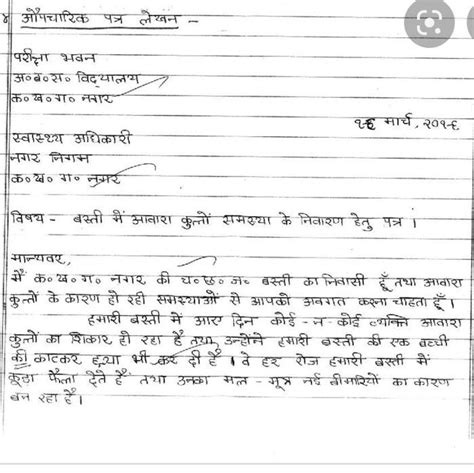 ४ औपचारिक पत्र लेखन -
परीक्षा भवन
अ०ब०स० विद्यालय
क०ख०ग० नगर
१८ मार्च, २०१८
स्वास्थ्य अधिकारी
नगर निगम
क०ख० ग० नगर
विषय - बस्ती में आवारा कुत्तों समस्या के निवारण हेतु पत्र ।
मान्यवर,
मैं क० ख० ग० नगर की च० छ० ज० बस्ती का निवासी हूँ तथा आवारा
कुत्तों के कारण हो रही समस्याओं से आपको अवगत करना चाहता हूँ।
हमारी बस्ती में आए दिन कोई - न - कोई व्यक्ति आवारा
कुत्तों का शिकार हो रहा है तथा उन्होंने हमारी बस्ती की एक बच्ची
की काटकर हत्या भी कर दी है । वे हर रोज हमारी बस्ती में
कूड़ा फैला देते हैं तथा उनका मल - मूत्र नई बीमारियों का कारण
बन रहा है।